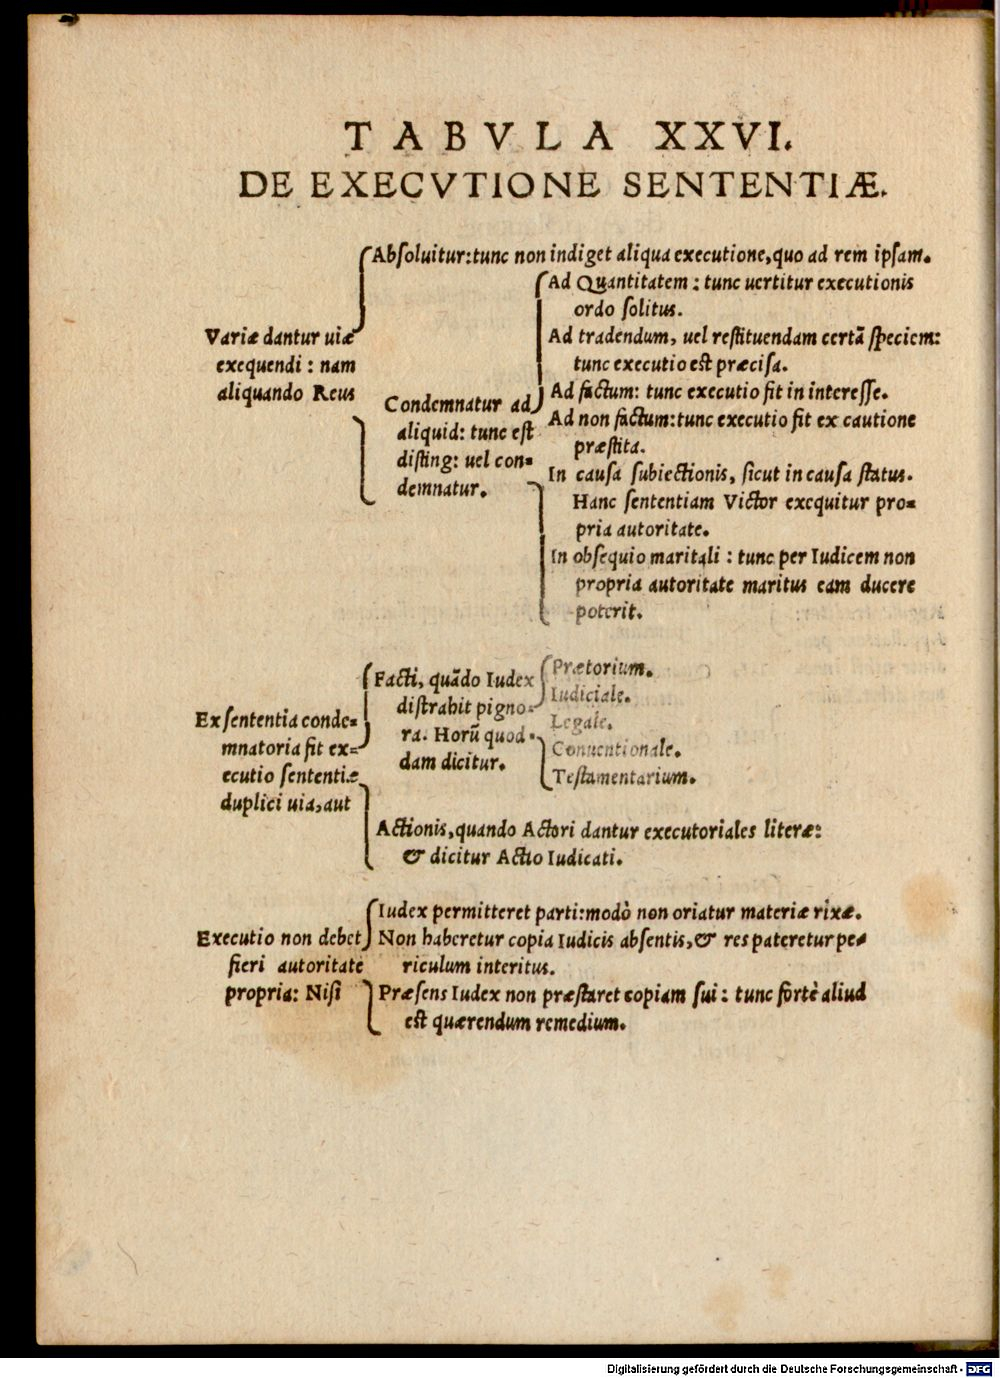 TABVLA XXVI.
DE EXECVTIONE SENTENTIÆ.
Variæ dantur uiæ
exequendi : nam
aliquando Reus
Absoluitur: tunc non indiget aliqua executione, quo ad rem ipsam.
Condemnatur ad
aliquid: tunc est
disting: uel con-
demnatur.
Ad Quantitatem : tunc uertitur executionis
ordo solitus.
Ad tradendum, uel restituendam certã speciem:
tunc executio est præcisa.
Ad factum: tunc executio fit in interesse.
Ad non factum: tunc executio fit ex cautione
præstita.
In causa subiectionis, sicut in causa status.
Hanc sententiam Victor exequitur pro-
pria autoritate.
In obsequio maritali : tunc per Iudicem non
propria autoritate maritus eam ducere
poterit.
Ex sententia conde-
mnatoria fit ex-
ecutio sententiæ
duplici uia, aut
Facti, quãdo Iudex
distrahit pigno-
ra. Horũ quod-
dam dicitur.
Prætorium.
Iudiciale.
Legale.
Conuentionale.
Testamentarium.
Actionis, quando Actori dantur executoriales literæ:
& dicitur Actio Iudicati.
Executio non debet
fieri autoritate
propria: Nisi
Iudex permitteret parti: modò non oriatur materiæ rixæ.
Non haberetur copia Iudicis absentis, & res pateretur pe-
riculum interitus.
Præsens Iudex non præstaret copiam sui : tunc fortè aliud
est quærendum remedium.
Digitalisierung gefördert durch die Deutsche Forschungsgemeinschaft - DFG